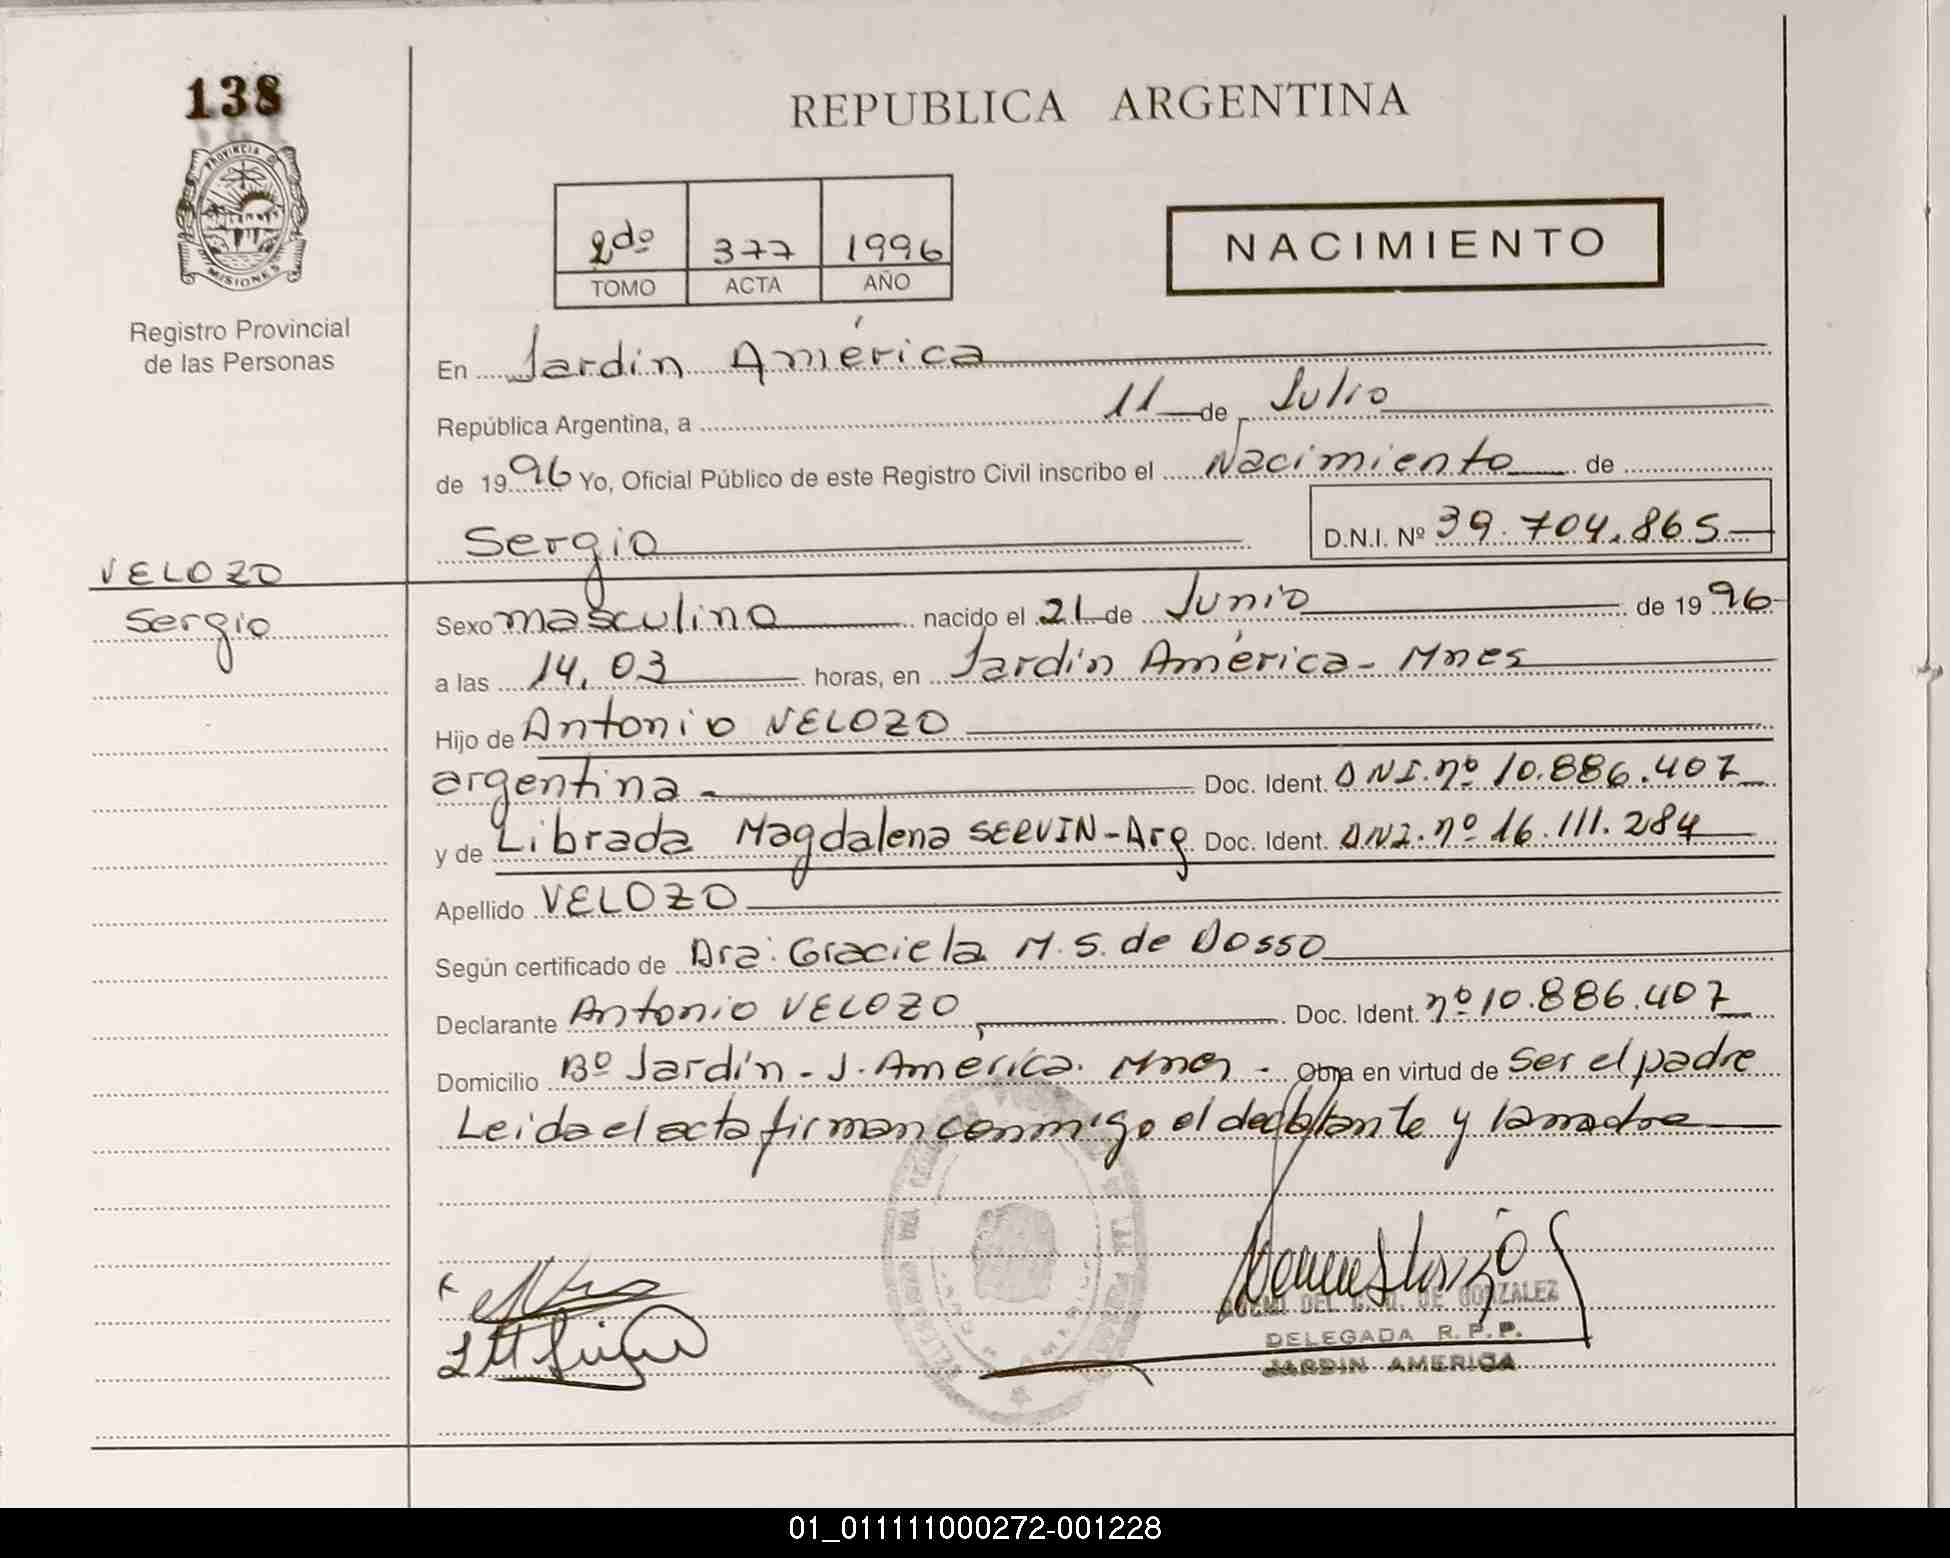 138
PROVINCIA DE
MISIONES
Registro Provincial
de las Personas
REPUBLICA ARGENTINA
2do 377 1996
TOMO ACTA AÑO
NACIMIENTO
En Jardín América
República Argentina, a 11 de Julio
de 1996 Yo, Oficial Público de este Registro Civil inscribo el Nacimiento de
Sergio D.N.I. Nº 39.704.865
VELOZO
Sergio
Sexo masculino nacido el 21 de Junio de 1996
a las 14,03 horas, en Jardín América - Mnes
Hijo de Antonio VELOZO
argentina - Doc. Ident. DNI. nº 10.886.407
y de Librada Magdalena SERVIN - Arg Doc. Ident. DNI. nº 16.111.284
Apellido VELOZO
Según certificado de Dra: Graciela M. S. de Dosso
Declarante Antonio VELOZO Doc. Ident. nº 10.886.407
Domicilio Bº Jardín - J. América. Mnes - Obra en virtud de ser el padre
Leida el acta firman conmigo el declarante y la madre
DEL C. D. DE GONZALEZ
DELEGADA R.P.P.
JARDIN AMERICA
01_011111000272-001228